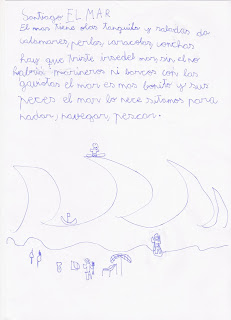 Santiago EL MAR
El mar tiene olas tranquilas y saladas da
calamares, perlas, caracolas, conchas
hay que triste irse del mar sin el no
habria marineros ni barcos con las
gaviotas el mar es mas bonito y sus
peces el mar lo necesitamos para
nadar, navegar, pescar.